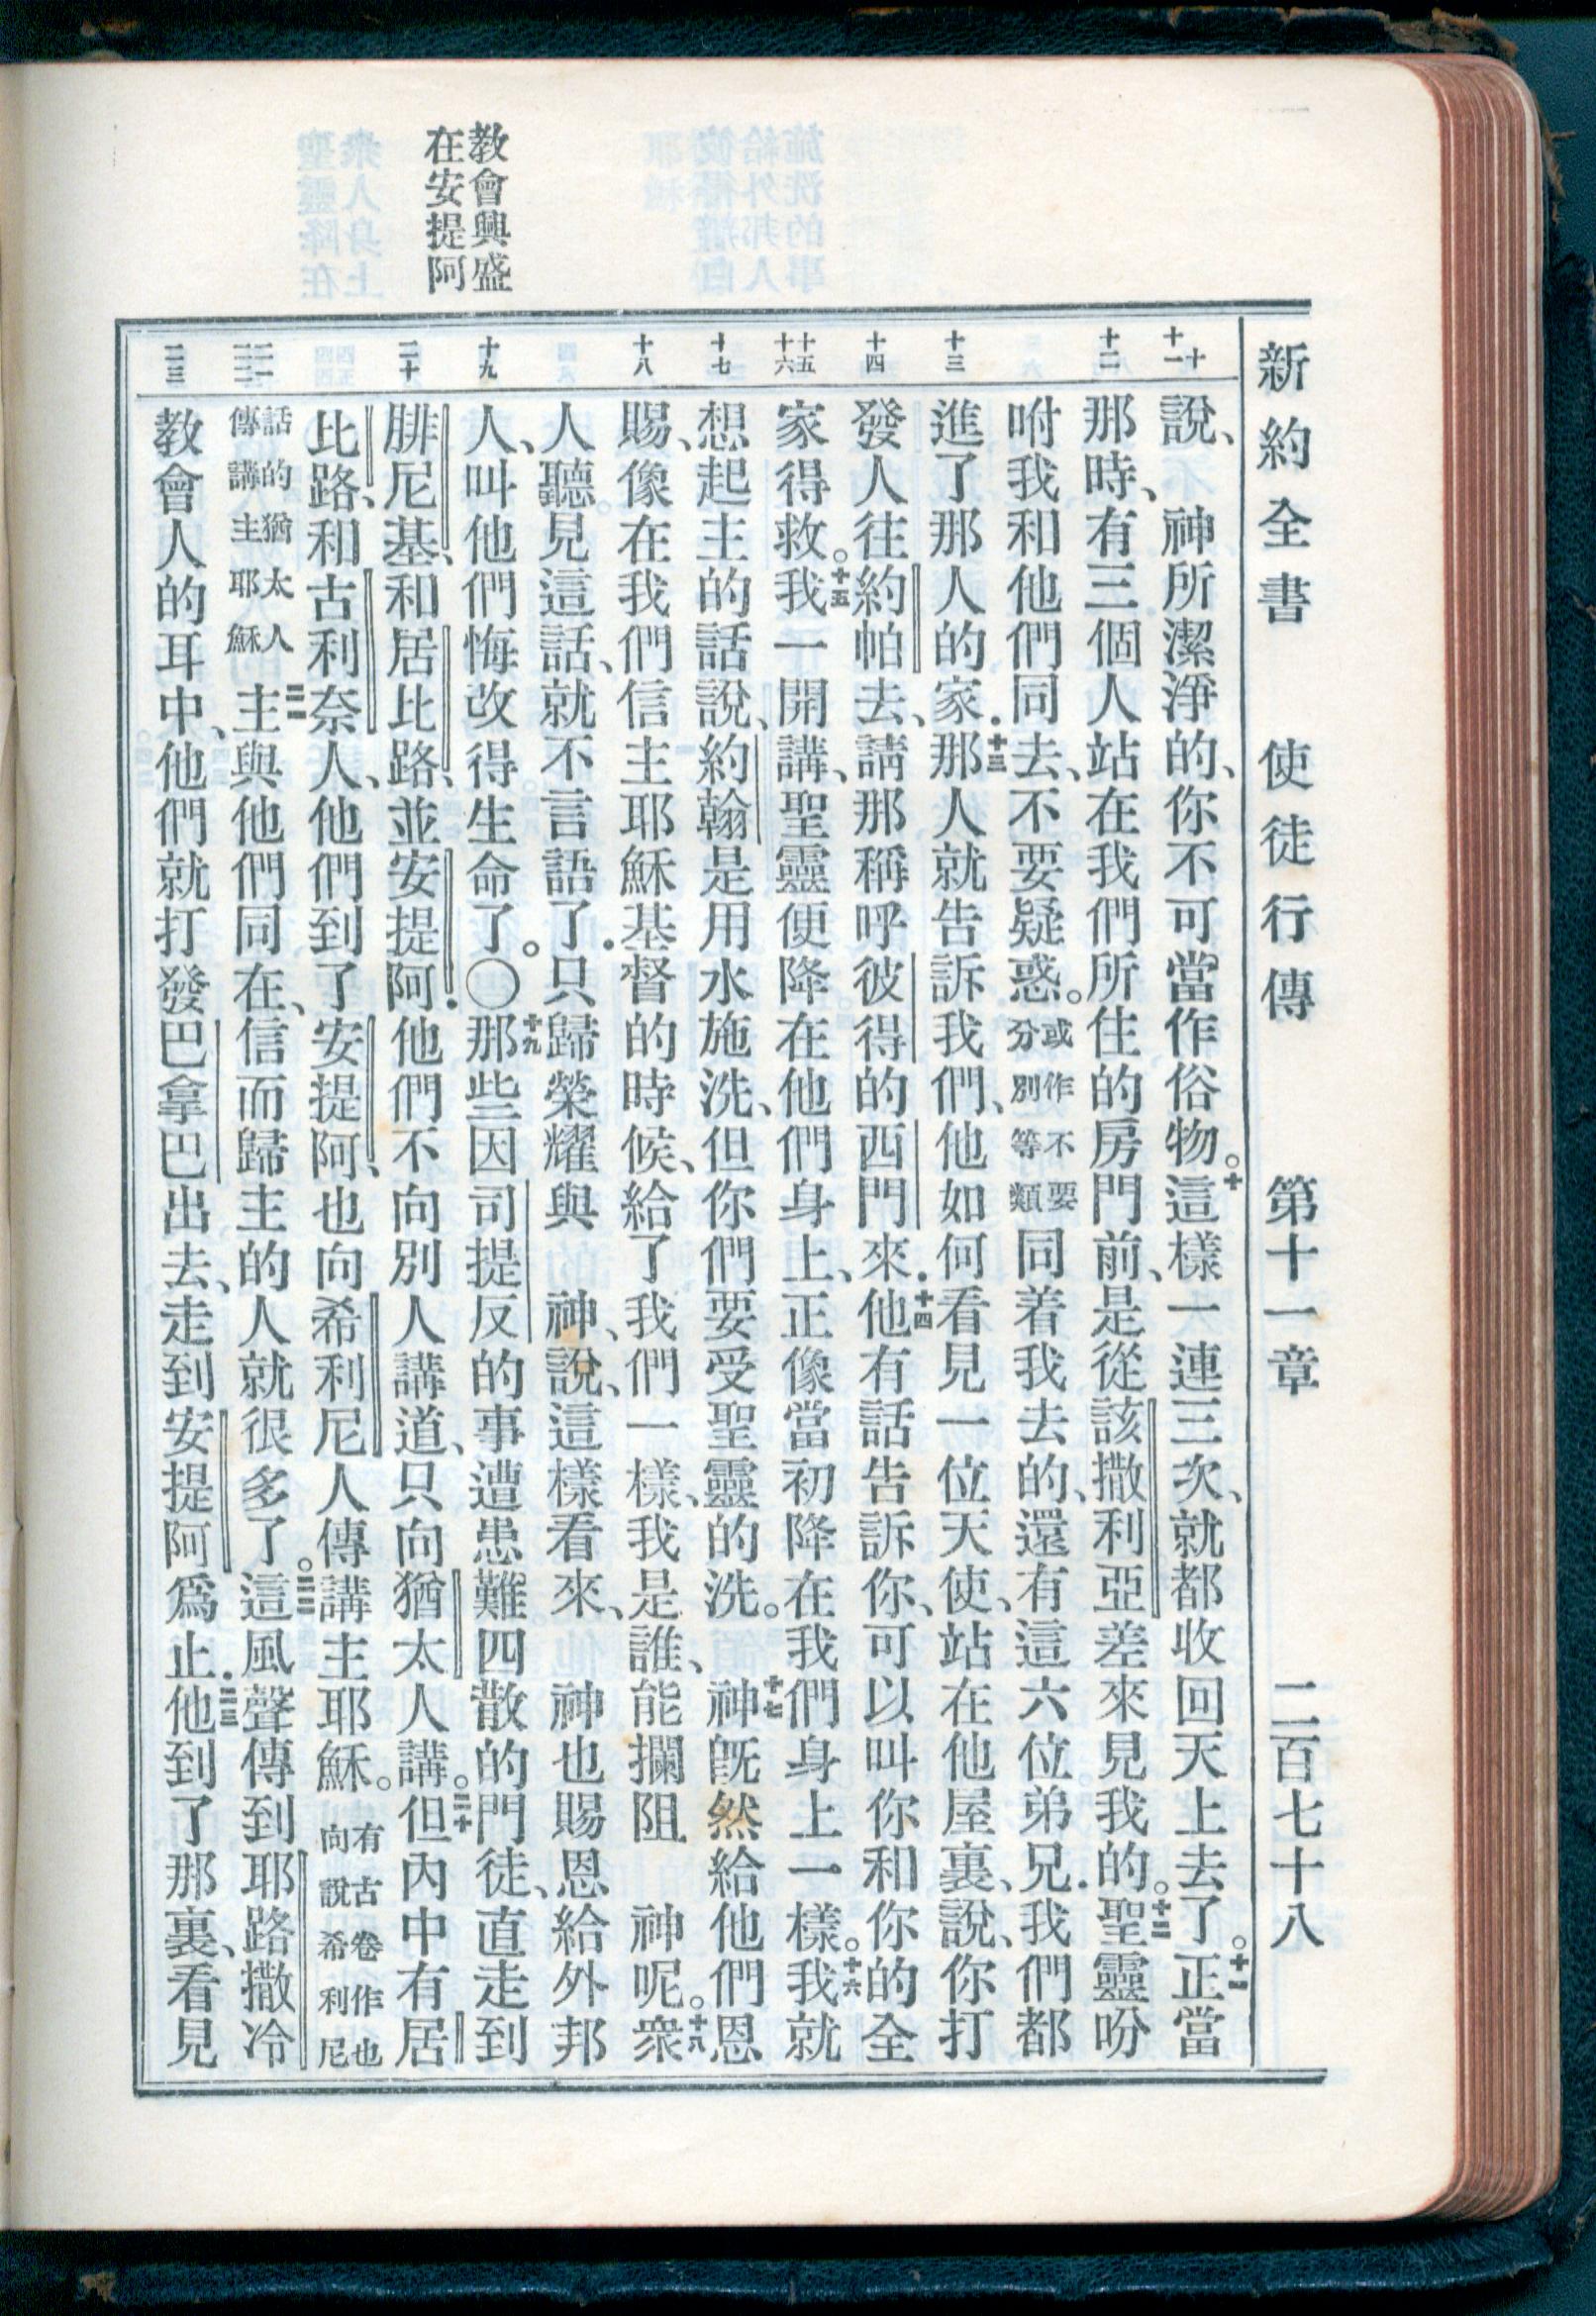 新約全書　使徒行傳　第十一章　二百七十八
教會興盛
在安提阿
十
十一
十二
十三
十四
十五
十六
十七
十八
十九
二十
二一
二二
二三
說、　神所潔淨的、你不可當作俗物。十這樣一連三次、就都收回天上去了。十一正當
那時、有三個人站在我們所住的房門前、是從該撒利亞差來見我的。十二聖靈吩
咐我和他們同去、不要疑惑。或作不要分別等類同着我去的、還有這六位弟兄．我們都
進了那人的家．十三那人就告訴我們、他如何看見一位天使、站在他屋裏、說、你打
發人往約帕去、請那稱呼彼得的西門來．十四他有話告訴你、可以叫你和你的全
家得救。十五我一開講、聖靈便降在他們身上、正像當初降在我們身上一樣。十六我就
想起主的話說、約翰是用水施洗、但你們要受聖靈的洗。十七　神旣然給他們恩
賜、像在我們信主耶穌基督的時候、給了我們一樣、我是誰、能攔阻　神呢。十八衆
人聽見這話、就不言語了．只歸榮耀與　神、說、這樣看來、　神也賜恩給外邦
人、叫他們悔改得生命了。〇十九那些因司提反的事遭患難四散的門徒、直走到
腓尼基、和居比路、並安提阿．他們不向別人講道、只向猶太人講。二十但內中有居
比路、和古利奈人、他們到了安提阿、也向希利尼人傳講主耶穌。有古卷作也向說希利尼
話的猶太人傳講主耶穌二一主與他們同在、信而歸主的人就很多了。二二這風聲傳到耶路撒冷
教會人的耳中、他們就打發巴拿巴出去、走到安提阿爲止．二三他到了那裏、看見